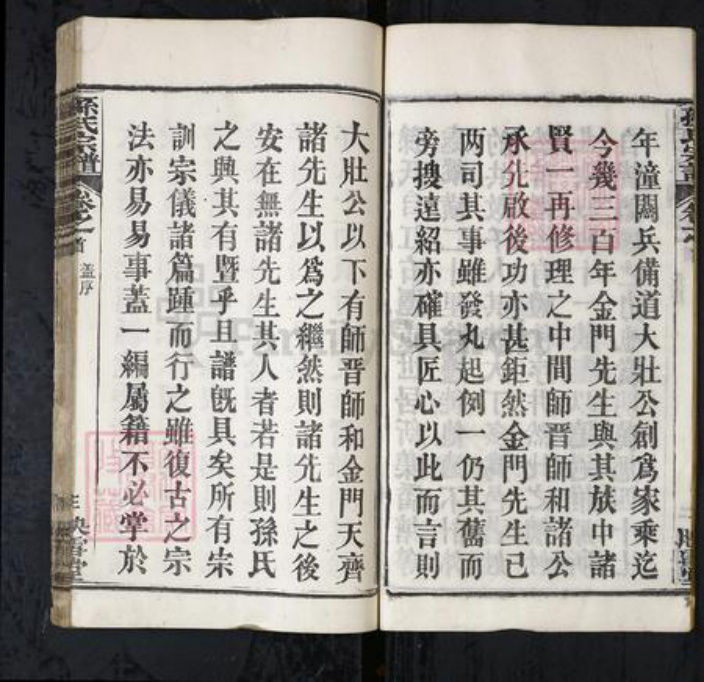 年潼關兵備道大壯公創爲家乘迄
今幾三百年金門先生與其族中諸
賢一再修理之中間師晋師和諸公
承先啟後功亦甚鉅然金門先生已
两司其事雖發凡起例一仍其舊而
旁搜遠紹亦確具匠心以此而言則
大壯公以下有師晋師和金門天齊
諸先生以爲之繼然則諸先生之後
安在無諸先生其人者若是則孫氏
之興其有曁乎且譜旣具矣所有宗
訓宗儀諸篇踵而行之雖復古之宗
法亦易易事蓋一編屬籍不必掌於
孫氏宗譜
卷之首
蓋序
映雪堂